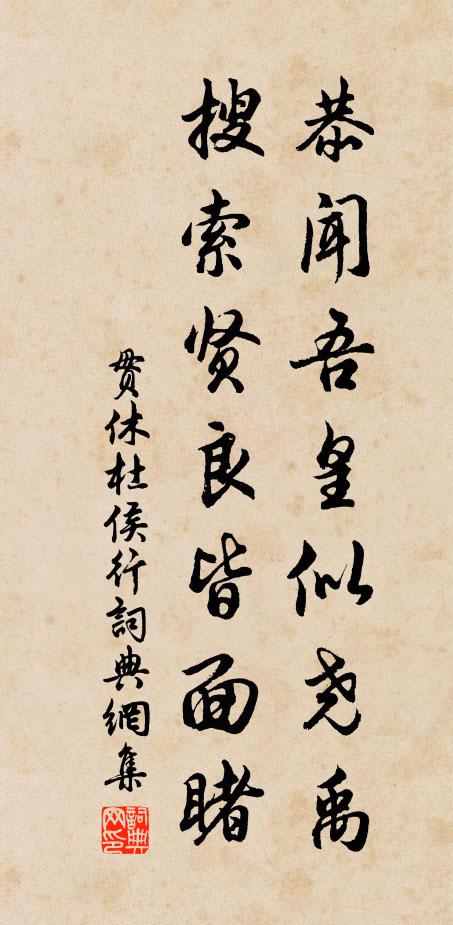 恭闻吾皇似尧禹
搜索贤良皆面睹
贯休杜侯行詞典網集
詞典网印